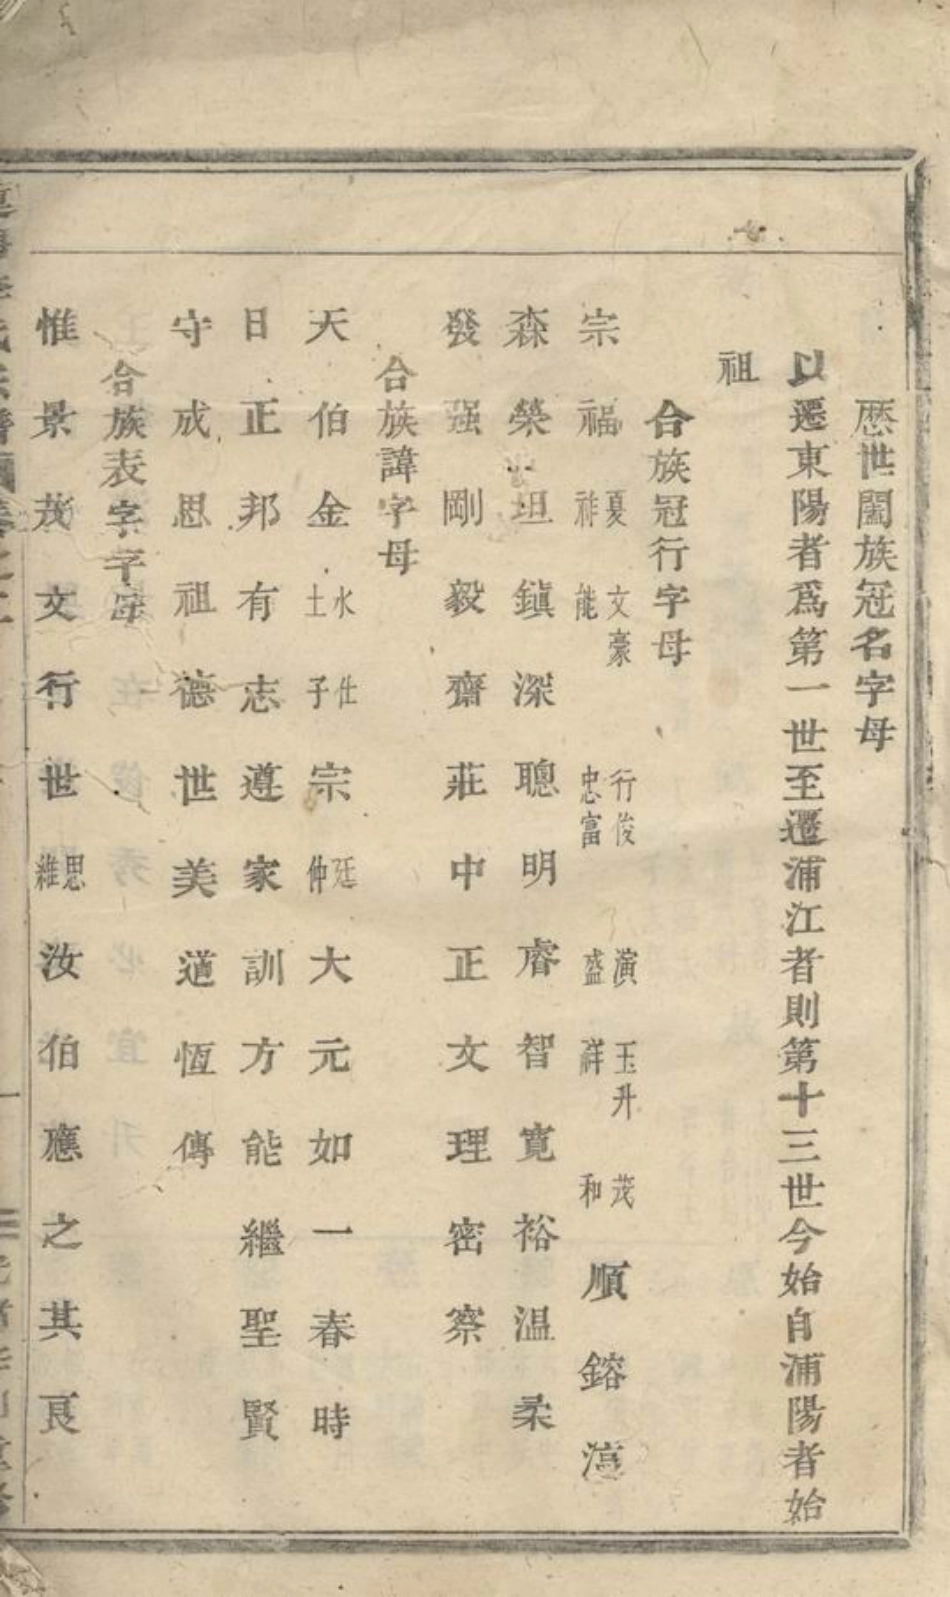 歷世闔族冠名字母
以遷東陽者爲第一世至遷浦江者則第十三世今始自浦陽者始
祖
合族冠行字母
宗福夏祥文豪能行俊忠富演盛玉升祥茂和順鎔淳
森榮坦鎮深聰明睿智寬裕温柔
發强剛毅齋莊中正文理密察
合族諱字母
天伯金水土仕子宗廷仲大元如一春時
日正邦有志遵家訓方能繼聖賢
守成思祖德世美道恆傳
合族表字字母
惟景茂文行世思維汝伯應之其良